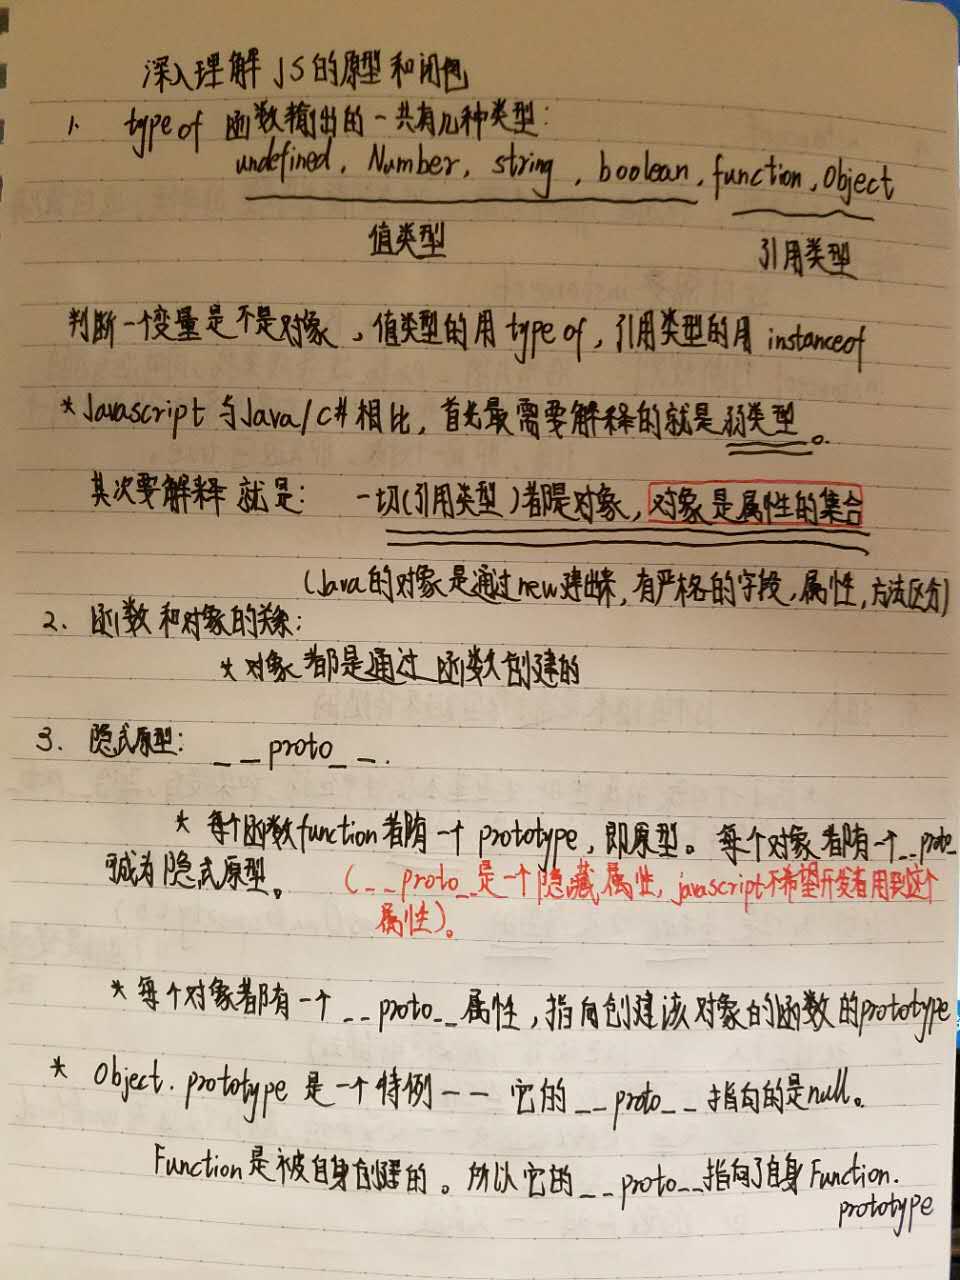 深入理解JS的原型和闭包
1. type of 函数输出的一共有几种类型:
undefined, Number, string, boolean, function, Object
值类型 引用类型
判断一个变量是不是对象，值类型的用 type of，引用类型的用 instanceof
* Javascript 与 Java/C# 相比，首先最需要解释的就是弱类型。
其次要解释就是: 一切(引用类型)都是对象，对象是属性的集合
(Java的对象是通过new建出来，有严格的字段，属性，方法区分)
2. 函数和对象的关系:
* 对象都是通过函数创建的
3. 隐式原型: __proto__.
* 每个函数function都有一个prototype，即原型。每个对象都有一个__proto_
可成为隐式原型。 (__proto_是一个隐藏属性，javascript不希望开发者用到这个
属性)。
* 每个对象都有一个__proto__属性，指向创建该对象的函数的prototype
* Object.prototype 是一个特例－－它的__proto__指向的是null。
Function是被自身创建的。所以它的__proto__指向了自身Function.
prototype